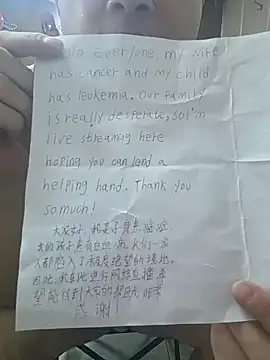 Hello everyone, my wife
has cancer and my child
has leukemia. Our family
is really desperate, so I'm
live streaming here
hoping you can lend a
helping hand. Thank you
so much!
大家好，我妻子患患癌症，
我的孩子患有白血病，我们一家
人都陷入了极度绝望的境地。
因此，我在此进行网络直播，希
望能得到大家的帮助，非常
感谢！